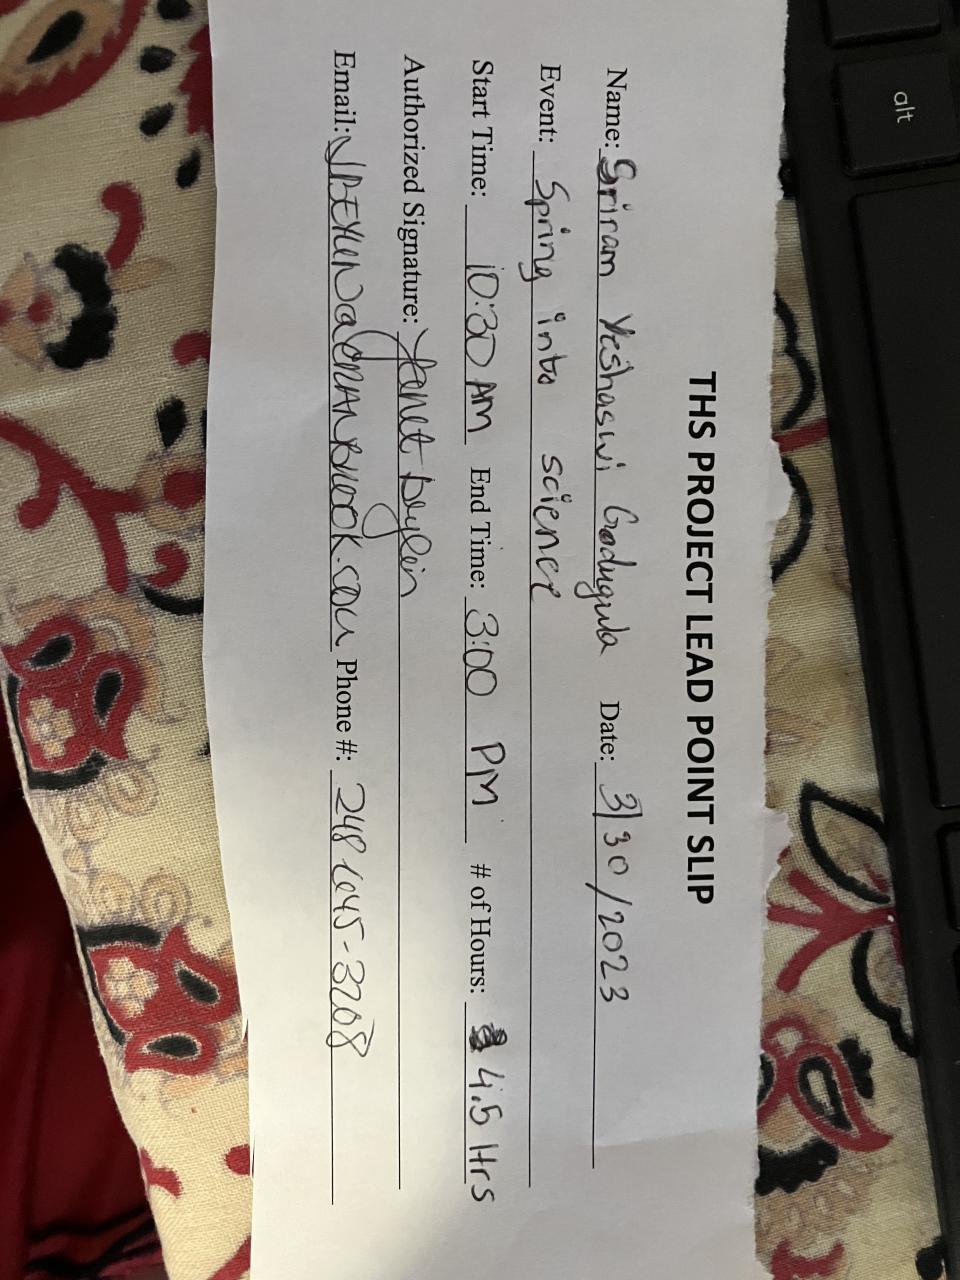 THS PROJECT LEAD POINT SLIP
Name: Sriram Yeshaswi Godugula Date: 3/30/2023
Event: Spring into science
Start Time: 10:30 AM End Time: 3:00 PM # of Hours: 4.5 Hrs
Authorized Signature: Janet beylin
Email: Phone #: 248 645-3208
alt